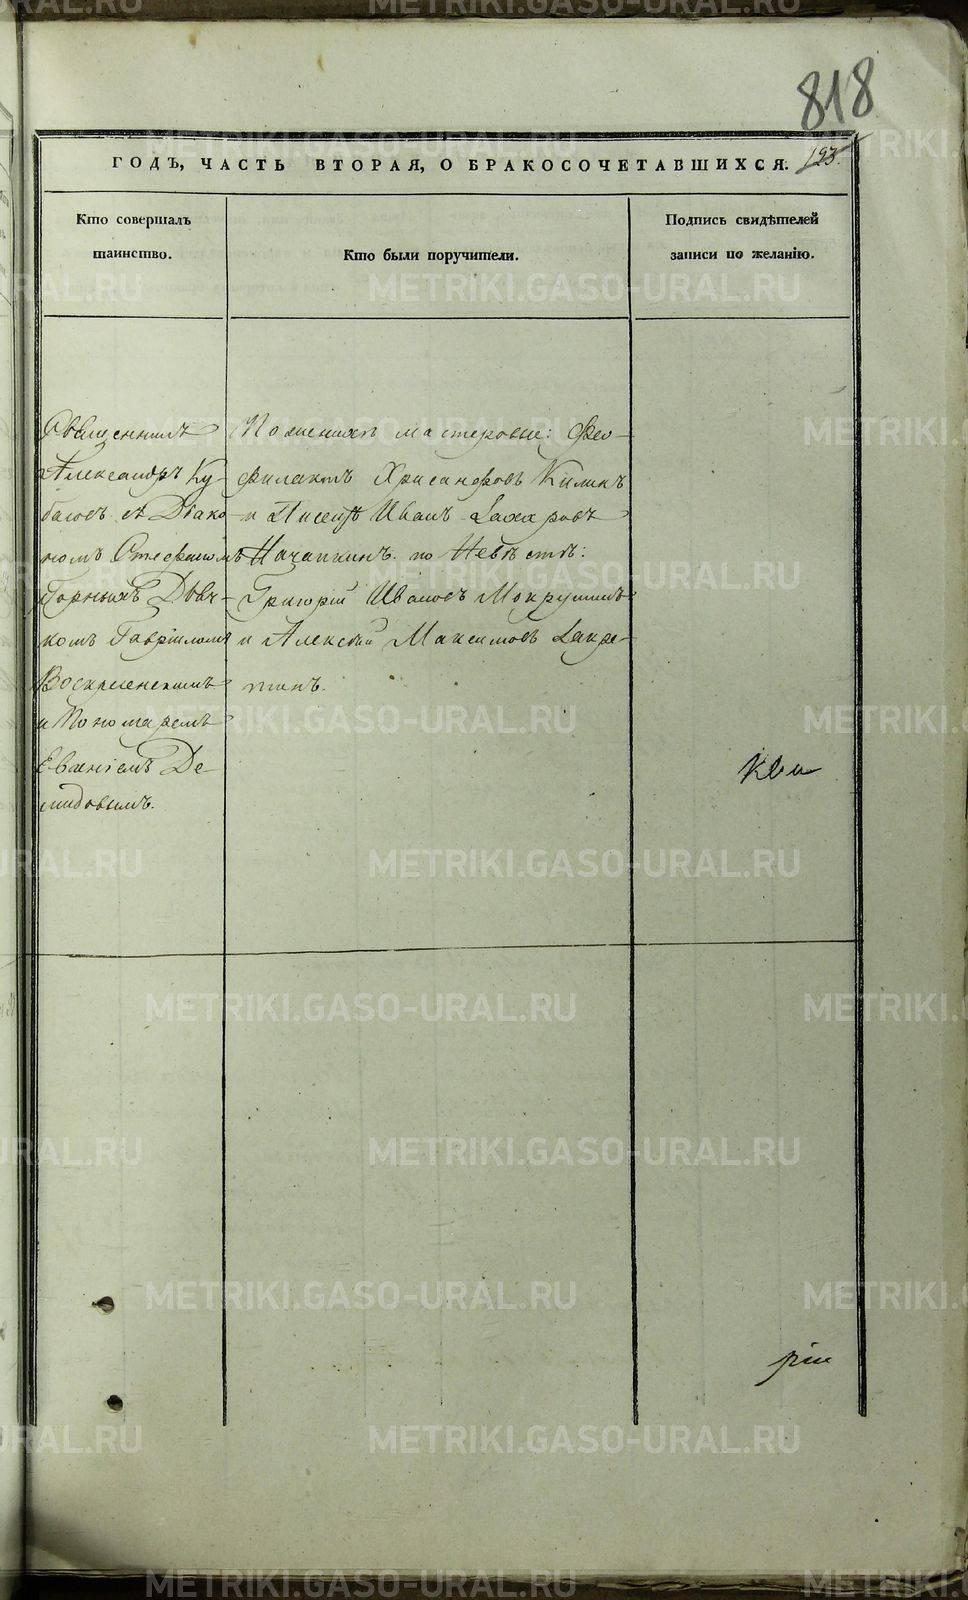 818
ГОДЪ, ЧАСТЬ ВТОРАЯ, О БРАКОСОЧЕТАВШИХСЯ.
193.
Кто совершалъ
таинство.
Кто были поручители.
Подпись свидѣтелей
записи по желанію.
Священникъ
Александръ Ку-
съ Діако-
номъ Стефаномъ
Горныхъ Дьяч-
комъ Гавріиломъ
Воскресенскимъ
и Пономаремъ
Евгеніемъ Де-
мидовымъ.
По женихѣ мастеровые: Ѳео-
филактъ Хрисанфовъ Килинъ
и Иванъ Захаровъ
по Невѣстѣ:
Григорій Ивановъ Мокрушинъ
и Алексѣй Максимовъ
METRIKI.GASO-URAL.RU